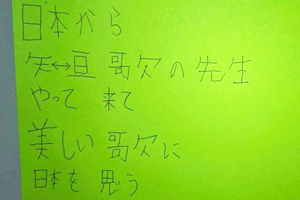 日本から
矢↔豆 哥欠の先生
やって 来て
美しい 哥欠に
日本を 思う